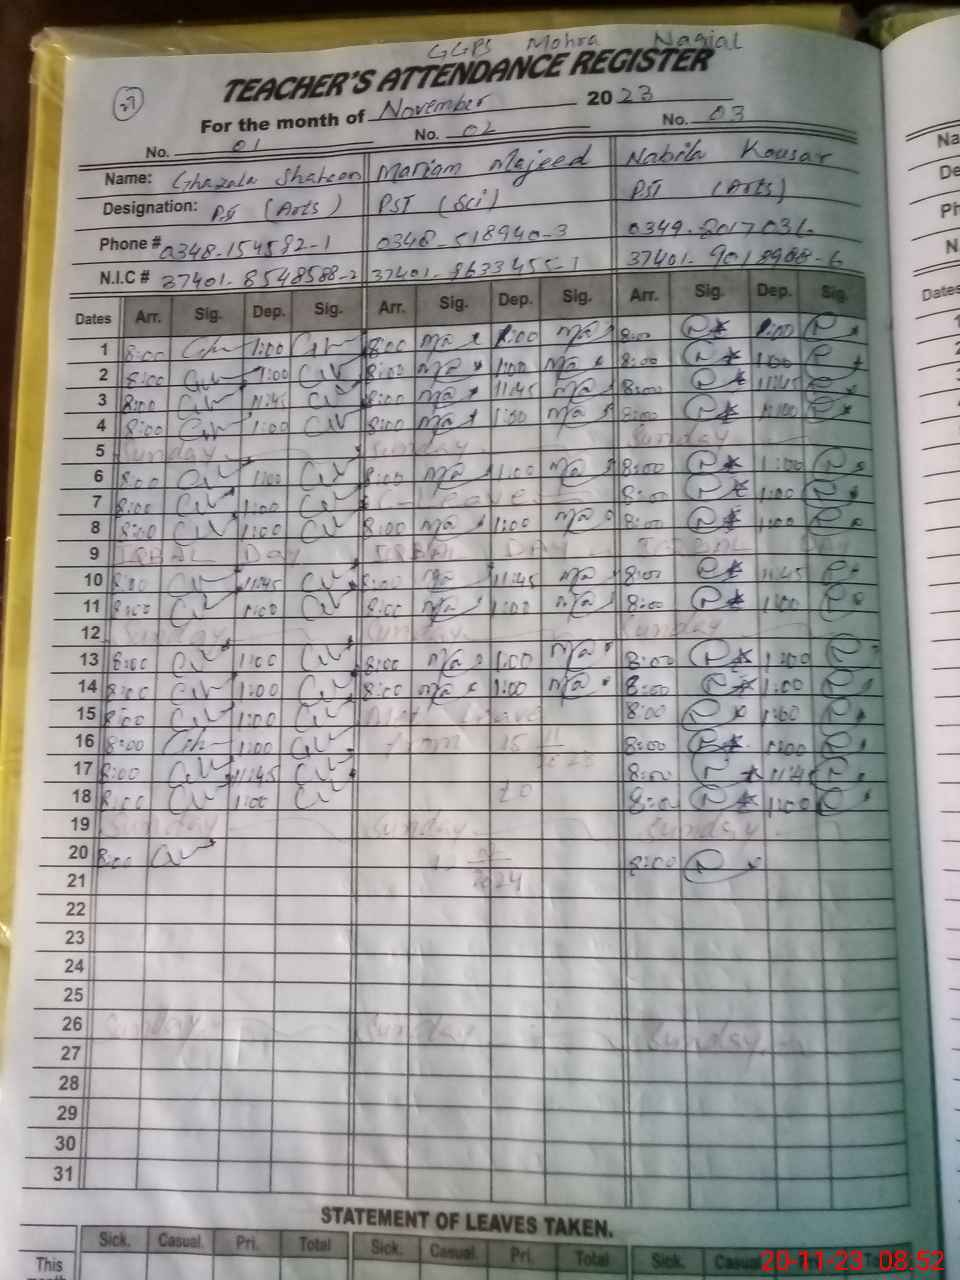 GGPS Mohra Nagial
TEACHER'S ATTENDANCE REGISTER
27
For the month of November 2023
No. 01 No. 02 No. 03
Name: Ghazala Shaheen Mariam Majeed Nabila Kousar
Designation: PST (Arts) PST (Sci) PST (Arts)
Phone # 0348-154592-1 0348-518940-3 0349-8017036
N.I.C # 37401-8548588-2 37401-8633455-1 37401-9018988-6
Dates Arr. Sig. Dep. Sig. Arr. Sig. Dep. Sig. Arr. Sig. Dep. Sig.
1 8:00 1:00 8:00 Ma 1:00 Ma 8:00 1:00
2 8:00 1:00 8:00 Ma 1:00 Ma 8:00 1:00
3 8:00 11:45 8:00 Ma 11:45 Ma 8:00 11:45
4 8:00 1:00 8:00 Ma 1:00 Ma 8:00 1:00
5 Sunday Sunday Sunday
6 8:00 1:00 8:00 Ma 1:00 Ma 8:00 1:00
7 8:00 1:00 C-Leave 8:00 1:00
8 8:00 1:00 8:00 Ma 1:00 Ma 8:00 1:00
9 IQBAL Day IQBAL DAY IQBAL DAY
10 8:00 11:45 8:00 Ma 11:45 Ma 8:00 11:45
11 8:00 1:00 8:00 Ma 1:00 Ma 8:00 1:00
12 Sunday Sunday Sunday
13 8:00 1:00 8:00 Ma 1:00 Ma 8:00 1:00
14 8:00 1:00 8:00 Ma 1:00 Ma 8:00 1:00
15 8:00 1:00 Leave 8:00 1:00
16 8:00 1:00 from 15 11 8:00 1:00
17 8:00 11:45 8:00 11:45
18 8:00 1:00 to 8:00 1:00
19 Sunday Sunday Sunday
20 8:00 8:00
21 2024
22
23
24
25
26 Sunday Sunday Sunday
27
28
29
30
31
STATEMENT OF LEAVES TAKEN.
Sick. Casual. Pri. Total Sick. Casual. Pri. Total Sick.
This
month
20-11-23 08:52
Na
De
Ph
N.
Dates